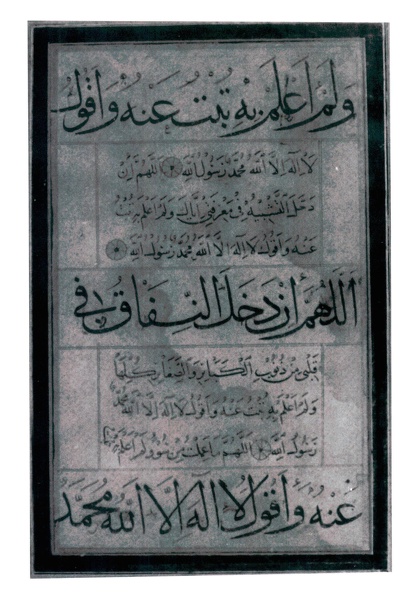 ولم أعلم به تبت عنه وأقول
لا إله إلا الله محمد رسول الله اللهم إن
دخل التشبيه في معرفتي إياك ولم أعلم به تبت
عنه وأقول لا إله إلا الله محمد رسول الله
اللهم إن دخل النفاق في
قلبي من ذنوب الكبائر والصغائر كلها
ولم أعلم به تبت عنه وأقول لا إله إلا الله محمد
رسول الله اللهم ما عملت من سوء ولم أعلم به
عنه وأقول لا إله إلا الله محمد